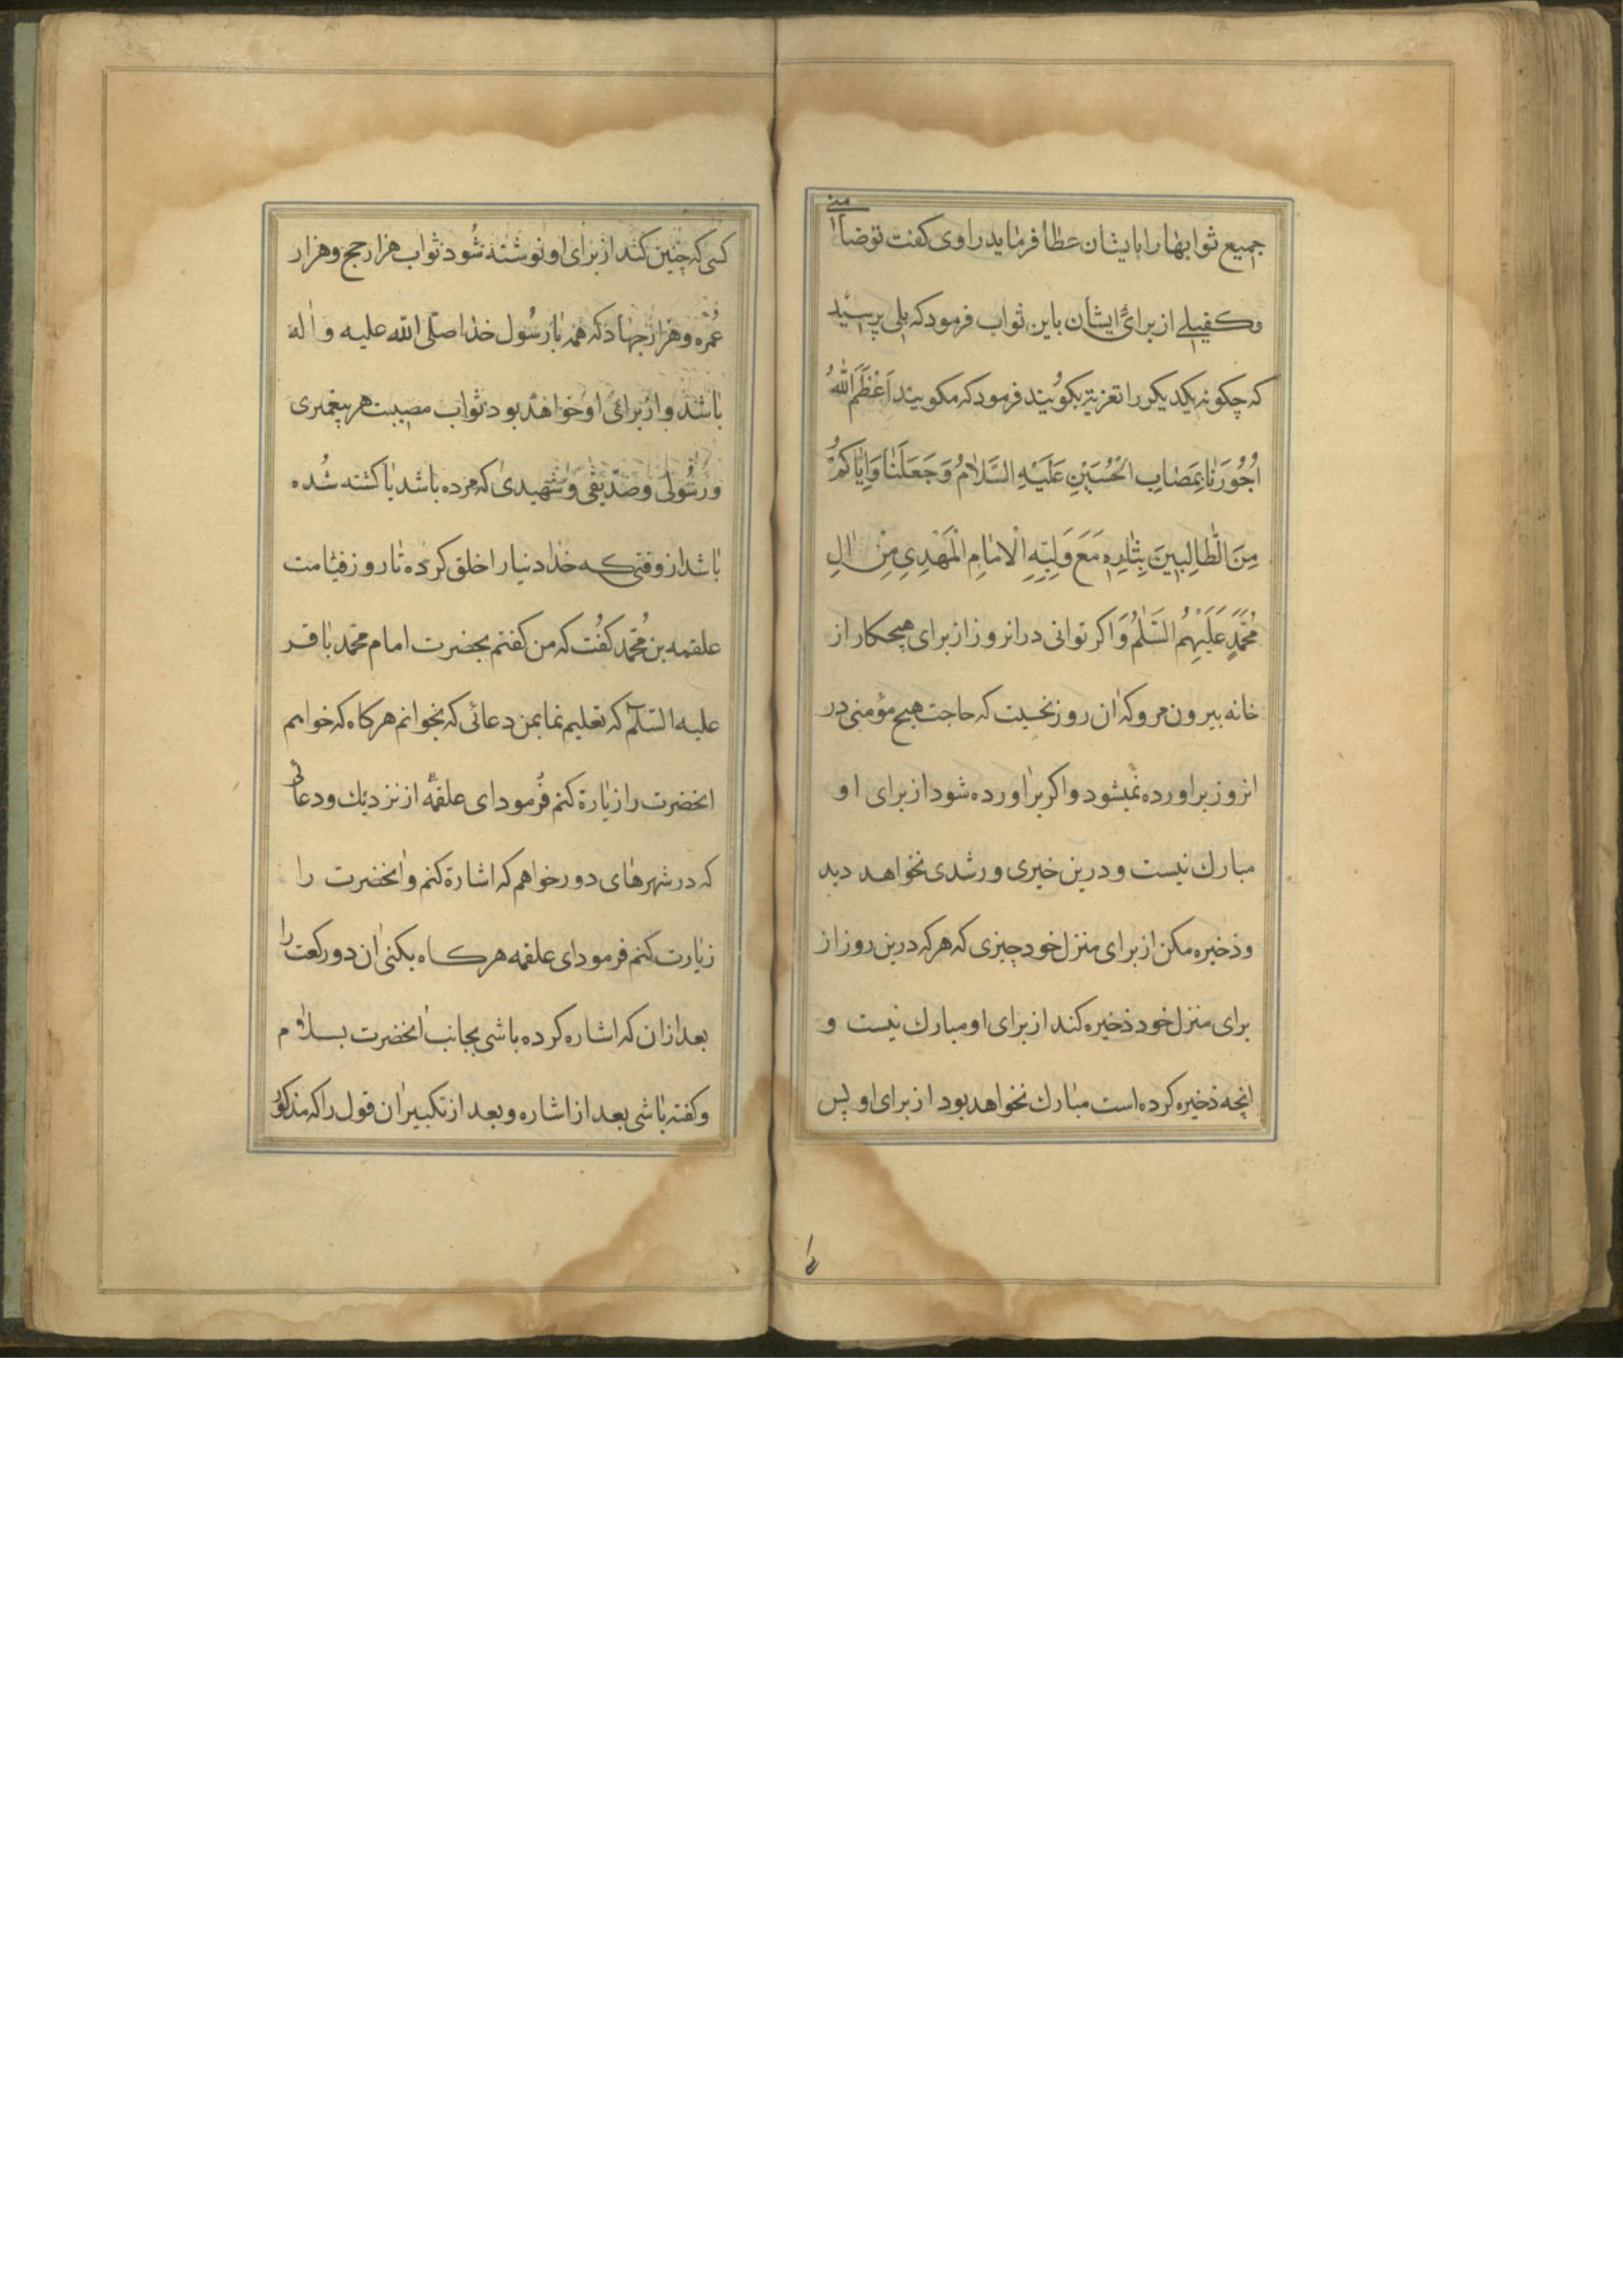 جمیع ثوابهٰا را بایشان عطا فرمٰاید راوی کفت تو ضٰامنی
وکفیلے از برائ ایشٰان باین ثواب فرمود که بلی پرسید
که چکونه یکدیکر را تعزیة بکویند فرمود که مکویند اَعْظَمَ اللهُ
اُجُوُرَنٰا بِمَصٰابِ الْحُسَیْنِ عَلَیْهِ السَّلٰامُ وَجَعَلَنٰا وَاِیّٰاکُمْ
مِنَ الطّٰالِبینَ بِثٰارِهِ مَعَ وَلِیِّهِ الْاِمٰامِ الْمَهْدِیِ مِنْ اٰلِ
مُحَمَّدٍ عَلَیْهِمُ السَّلٰمُ وَاکر توانی در انروز از برای هیچکار از
خانه بیرون مرو که ان روز نحسیت که حاجت هیچ مؤمنی در
انروز براورده نمیشود و اکر براورده شود از برای او
مبارك نیست و درین خیری و رشدی نخواهد دید
وذخیره مکن از برای منزل خود چیزی که هر که درین روز از
برای منزل خود ذخیره کند از برای او مبارك نیست و
انچه ذخیره کرده است مبٰارك نخواهد بود از برای او پس
کسی که چنین کند از برٰای او نوشته شُود ثوٰاب هزار حج وهزار
عُمره وهزار جهٰاد که همه بٰا رسُول خدٰا صلّی اللّٰه علیه واٰله
بٰاشد و از برائ او خواهد بود ثوٰاب مصیبت هر پیغمبری
ورسُولی وصدّیقی وشهیدی که مرده باشد یٰا کشته شُده
بٰاشد از وقتی که خدٰا دنیا را خلق کرده تٰا روز قیٰامت
علقمه بن مُحمّد کفُت که من کفتم بحضرت امام محمّد بٰاقر
علیه السّلٰم که تعلیم نما بمن دعائی که بخوانم هر کاه که خواهم
انحضرت را زیٰارة کنم فرُمود ای علقمه از نزدیك ودعائی
که در شهرهٰای دور خواهم که اشارة کنم وانحضرت را
زیٰارت کنم فرمود ای علقمه هر کاه بکنی ان دو رکعت را
بعد ازان که اشاره کرده باشی بجانب انحضرت بسلام
وکفته بٰاشی بعد از اشاره وبعد از تکبیر ان قول را که مذکور